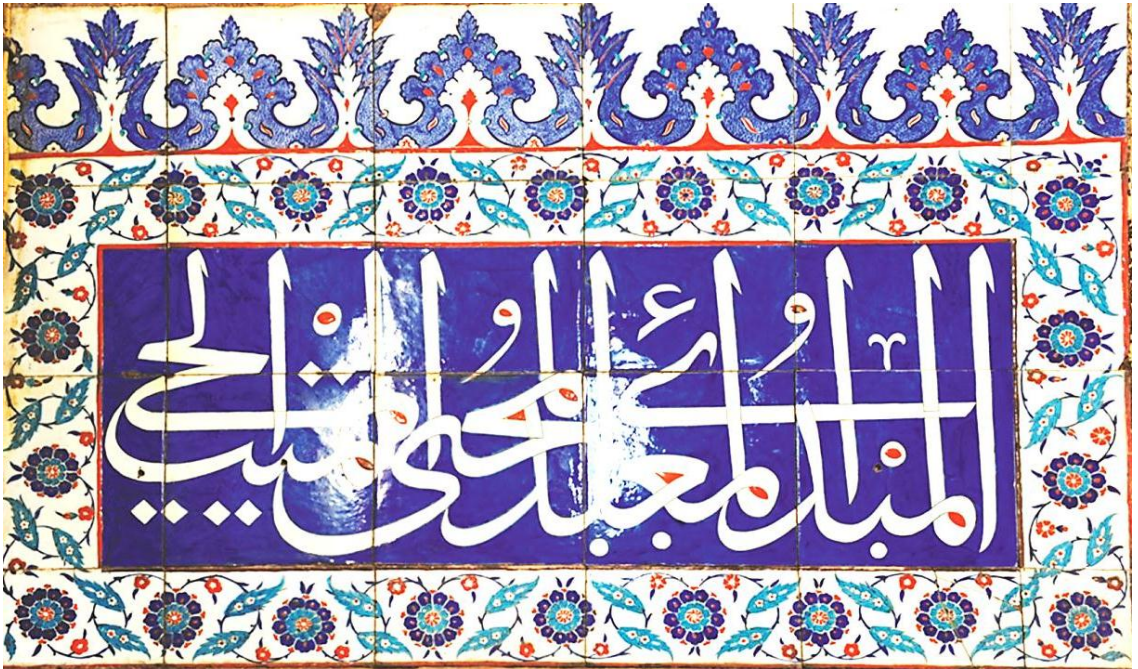 المبدئ المعيد المحيي المميت الحي